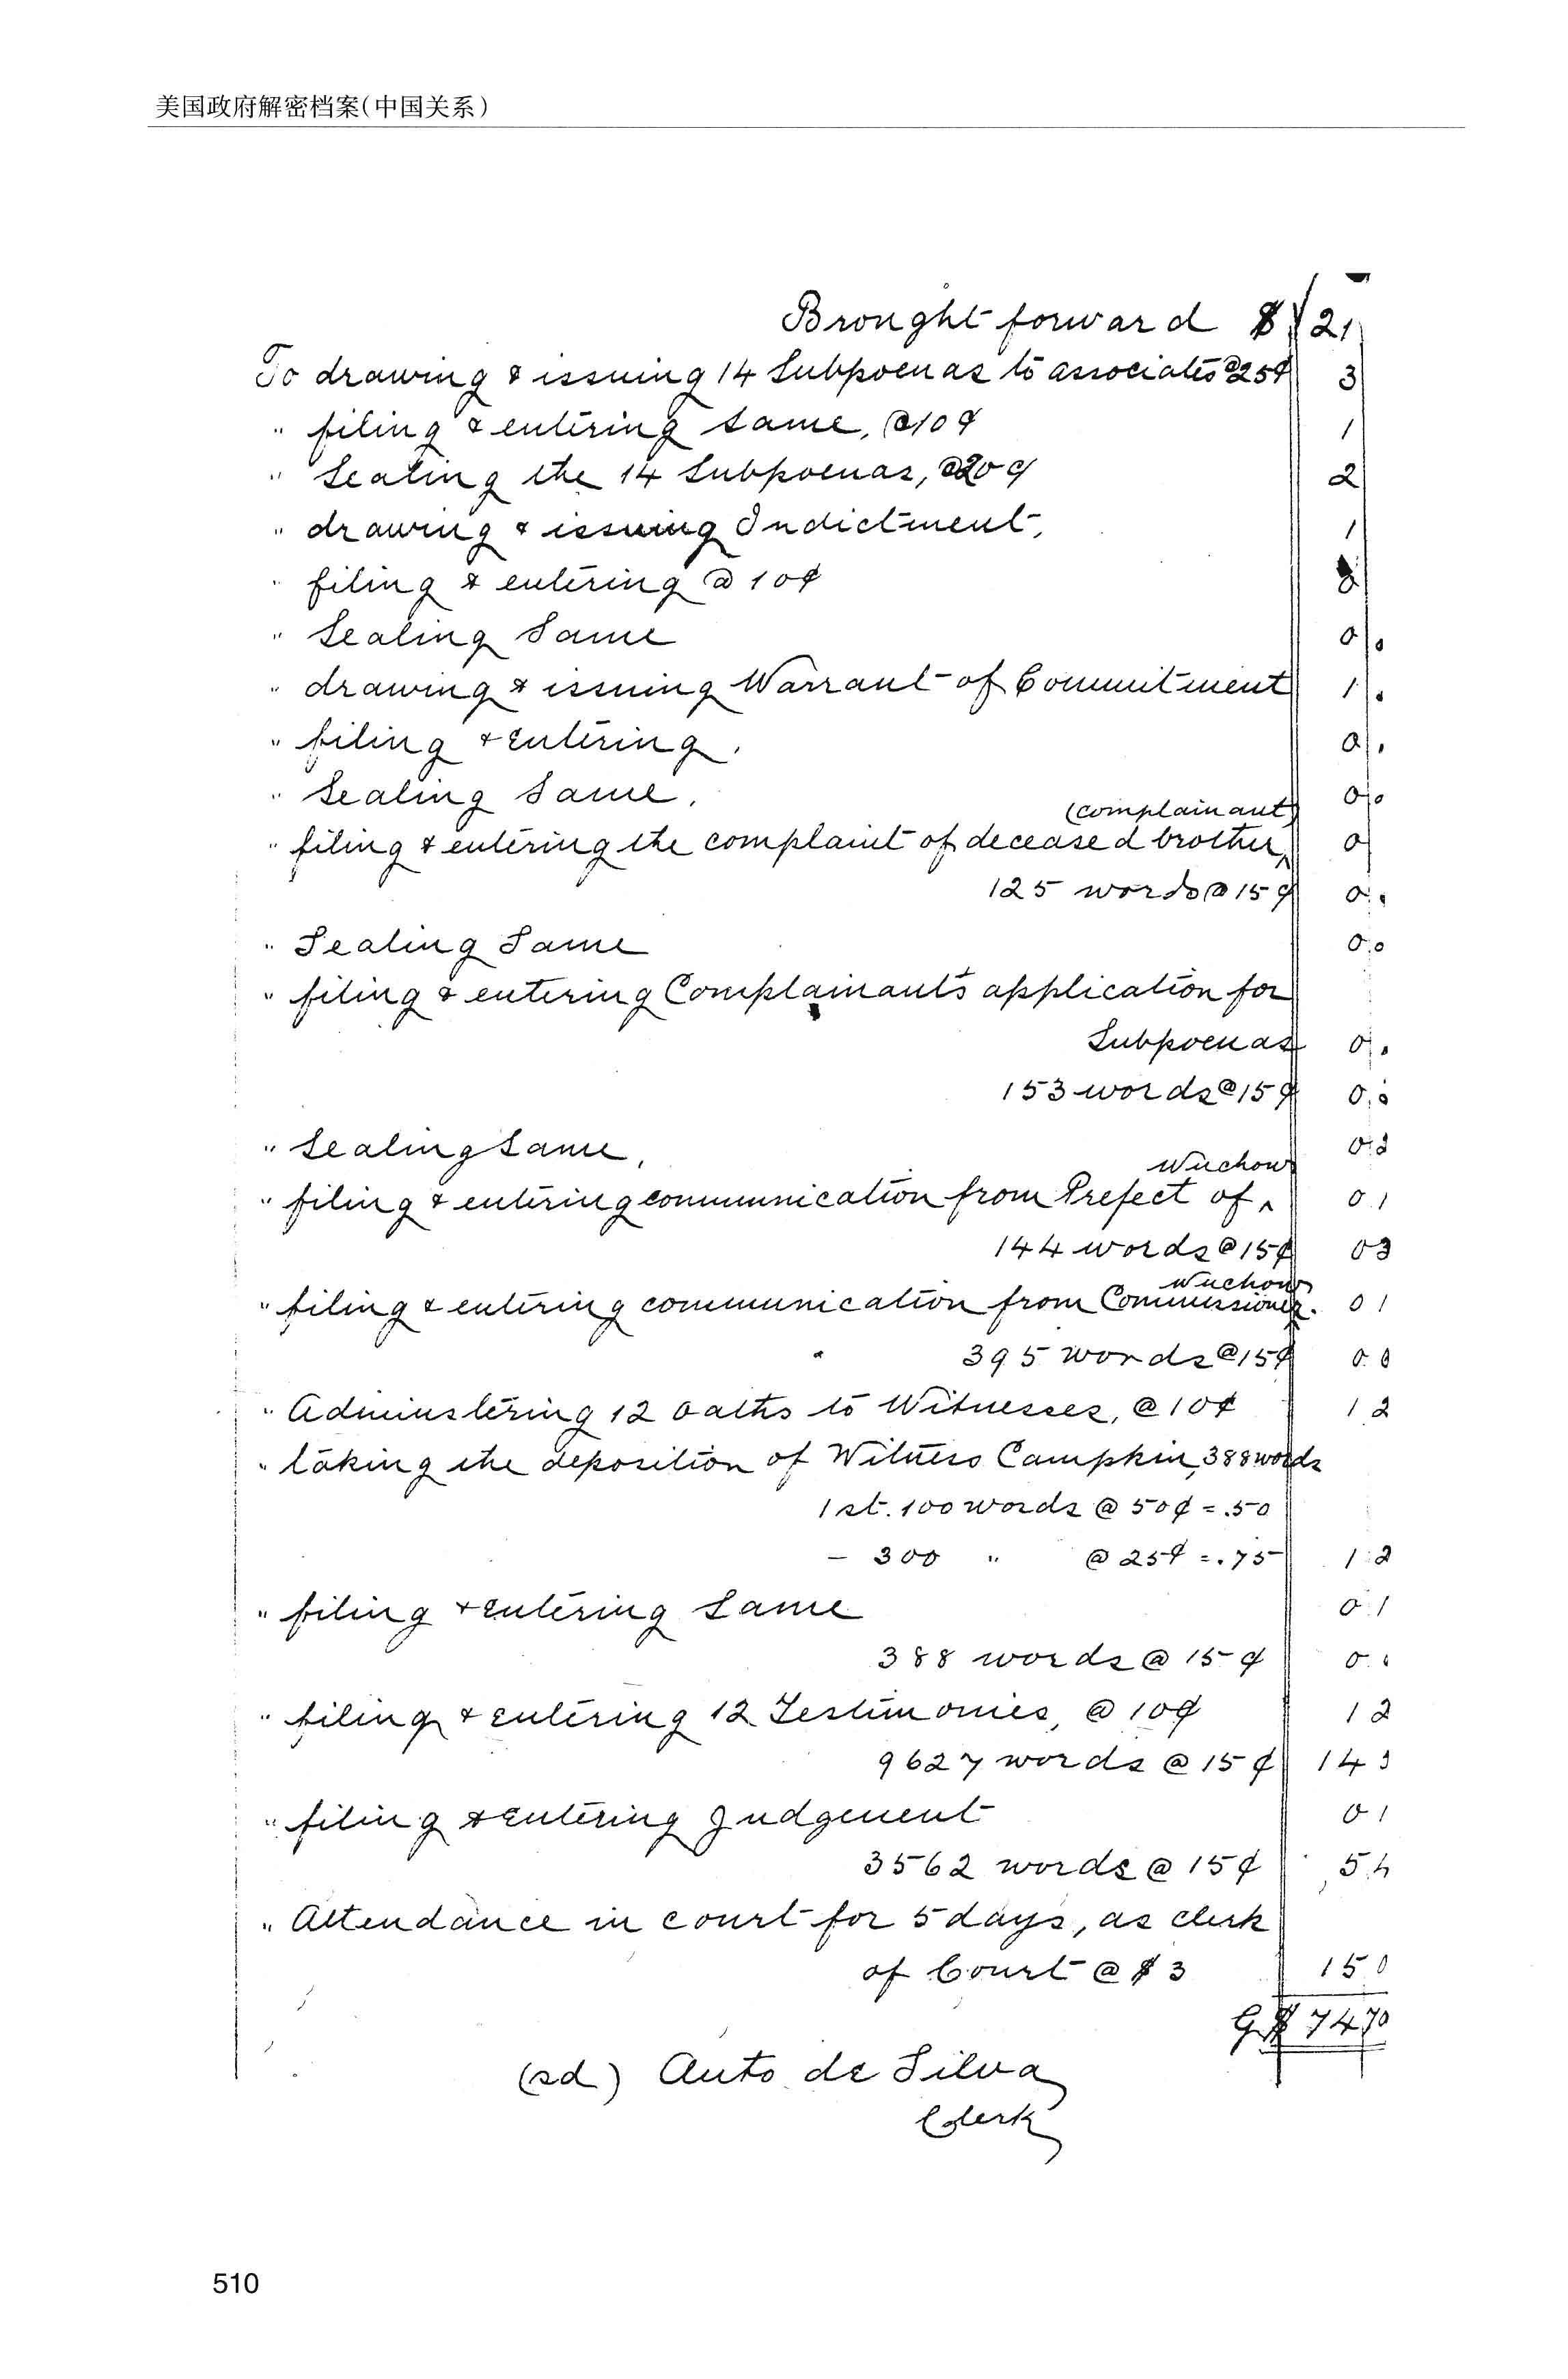 美国政府解密档案(中国关系)
Brought forward $ 21
To drawing & issuing 14 Subpoenas to associates @25¢ 3
" filing & entering same, @10¢ 1
" Sealing the 14 Subpoenas, @20¢ 2
" drawing & issuing Indictment, 1
" filing & entering @ 10¢
" Sealing Same 0
" drawing & issuing Warrant of Commitment 1
" filing & entering. 0
" Sealing Same. 0
(complainant)
" filing & entering the complaint of deceased brother^ 0
125 words @ 15¢ 0
" Sealing Same 0
" filing & entering Complainant's application for
Subpoenas 0
153 words @ 15¢ 0
" Sealing Same, 0
Wuchow
" filing & entering communication from Prefect of ^ 0 1
144 words @ 15¢ 0
Wuchow
" filing & entering communication from Commissioner. 0 1
395 words @ 15¢ 0
" Adminstering 12 oaths to Witnesses, @ 10¢ 1 2
" taking the deposition of Witness Campkin, 388 words
1st. 100 words @ 50¢ = .50
– 300 " @ 25¢ = .75 1 2
" filing & entering Same 0 1
388 words @ 15¢ 0
" filing & entering 12 Testimonies, @ 10¢ 1 2
9627 words @ 15¢ 14
" filing & entering Judgement 0 1
3562 words @ 15¢ 5
" Attendance in court for 5 days, as clerk
of Court @ $3 15 0
G$ 74 70
(sd) Anto de Silva
Clerk
510